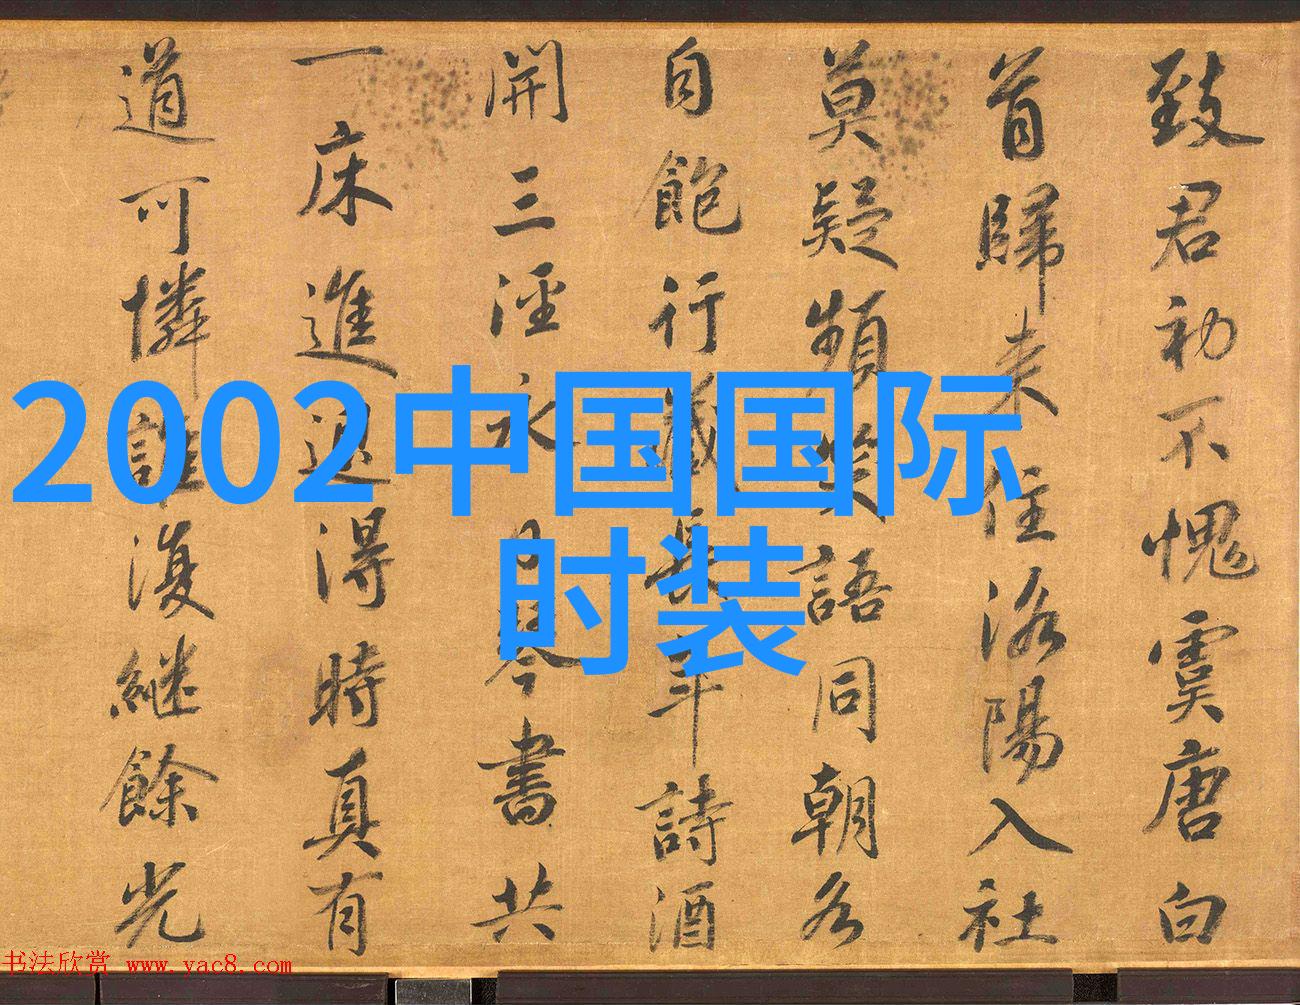 2002中国国际
时装
致君初不愧虞唐白
首歸来住洛陽入社
莫疑頻笑語同朝各
自飽行藏長年詩酒
開三涇永日琴書共
一床進退得時真有
道可憐誰復繼餘光
书法欣赏 www.yac8.com